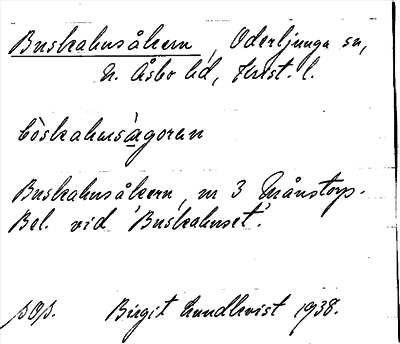 Buskahusåkern, Oderljunga sn,
N. Åsbo hd, Krist. l.
Buskahusåkern, nr 3 Månstorp.
Bel. vid 'Buskahuset'.
sOp. Birgit Lundkvist 1938.